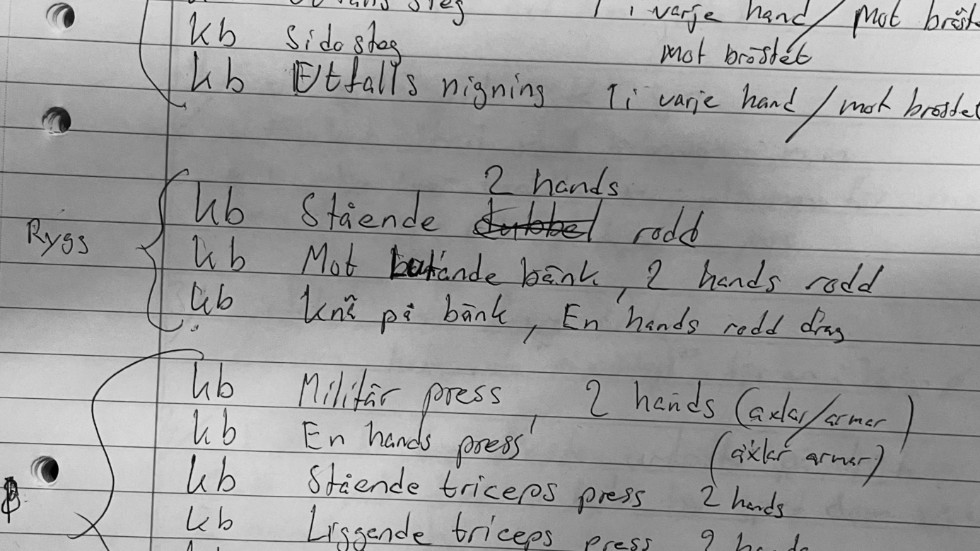 steg 1 i varje hand / mot bröst
kb Sidosteg mot bröstet
kb Utfalls nigning 1 i varje hand / mot bröstet
2 hands
kb Stående dubbel rodd
Rygg
kb Mot lutande bänk, 2 hands rodd
kb Knä på bänk, En hands rodd drag
kb Militär press, 2 hands (axlar/armar)
kb En hands press (axlar armar)
kb Stående triceps press 2 hands
kb Liggende triceps press 2 hands